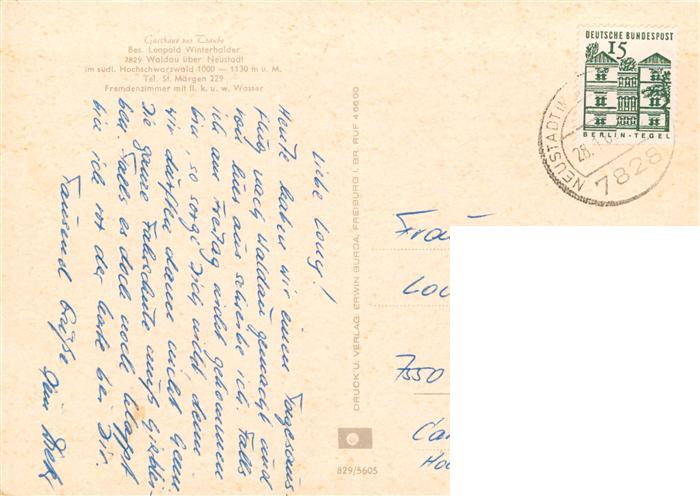 Gasthaus zur Traube
Bes. Leopold Winterhalder
7829 Waldau über Neustadt
im südl. Hochschwarzwald 1000 — 1130 m ü. M.
Tel. St. Märgen 229
Fremdenzimmer mit fl. k. u. w. Wasser
Liebe Lony!
Heute haben wir einen Tagesaus-
flug nach Waldau gemacht und
von hier aus schreibe ich. Falls
ich am Freitag nicht gekommen
bin, so sorge Dich nicht denn
wir dürften dann nicht
die ganze Fahrschule aufs
ben. Falls es doch noch klappt
bin ich ja der heute bei Dir.
Tausend Grüße
Dein
DRUCK U. VERLAG ERWIN BURDA, FREIBURG I. BR. RUF 46600
829/5605
DEUTSCHE BUNDESPOST
15
BERLIN-TEGEL
NEUSTADT
28.
7828
7550